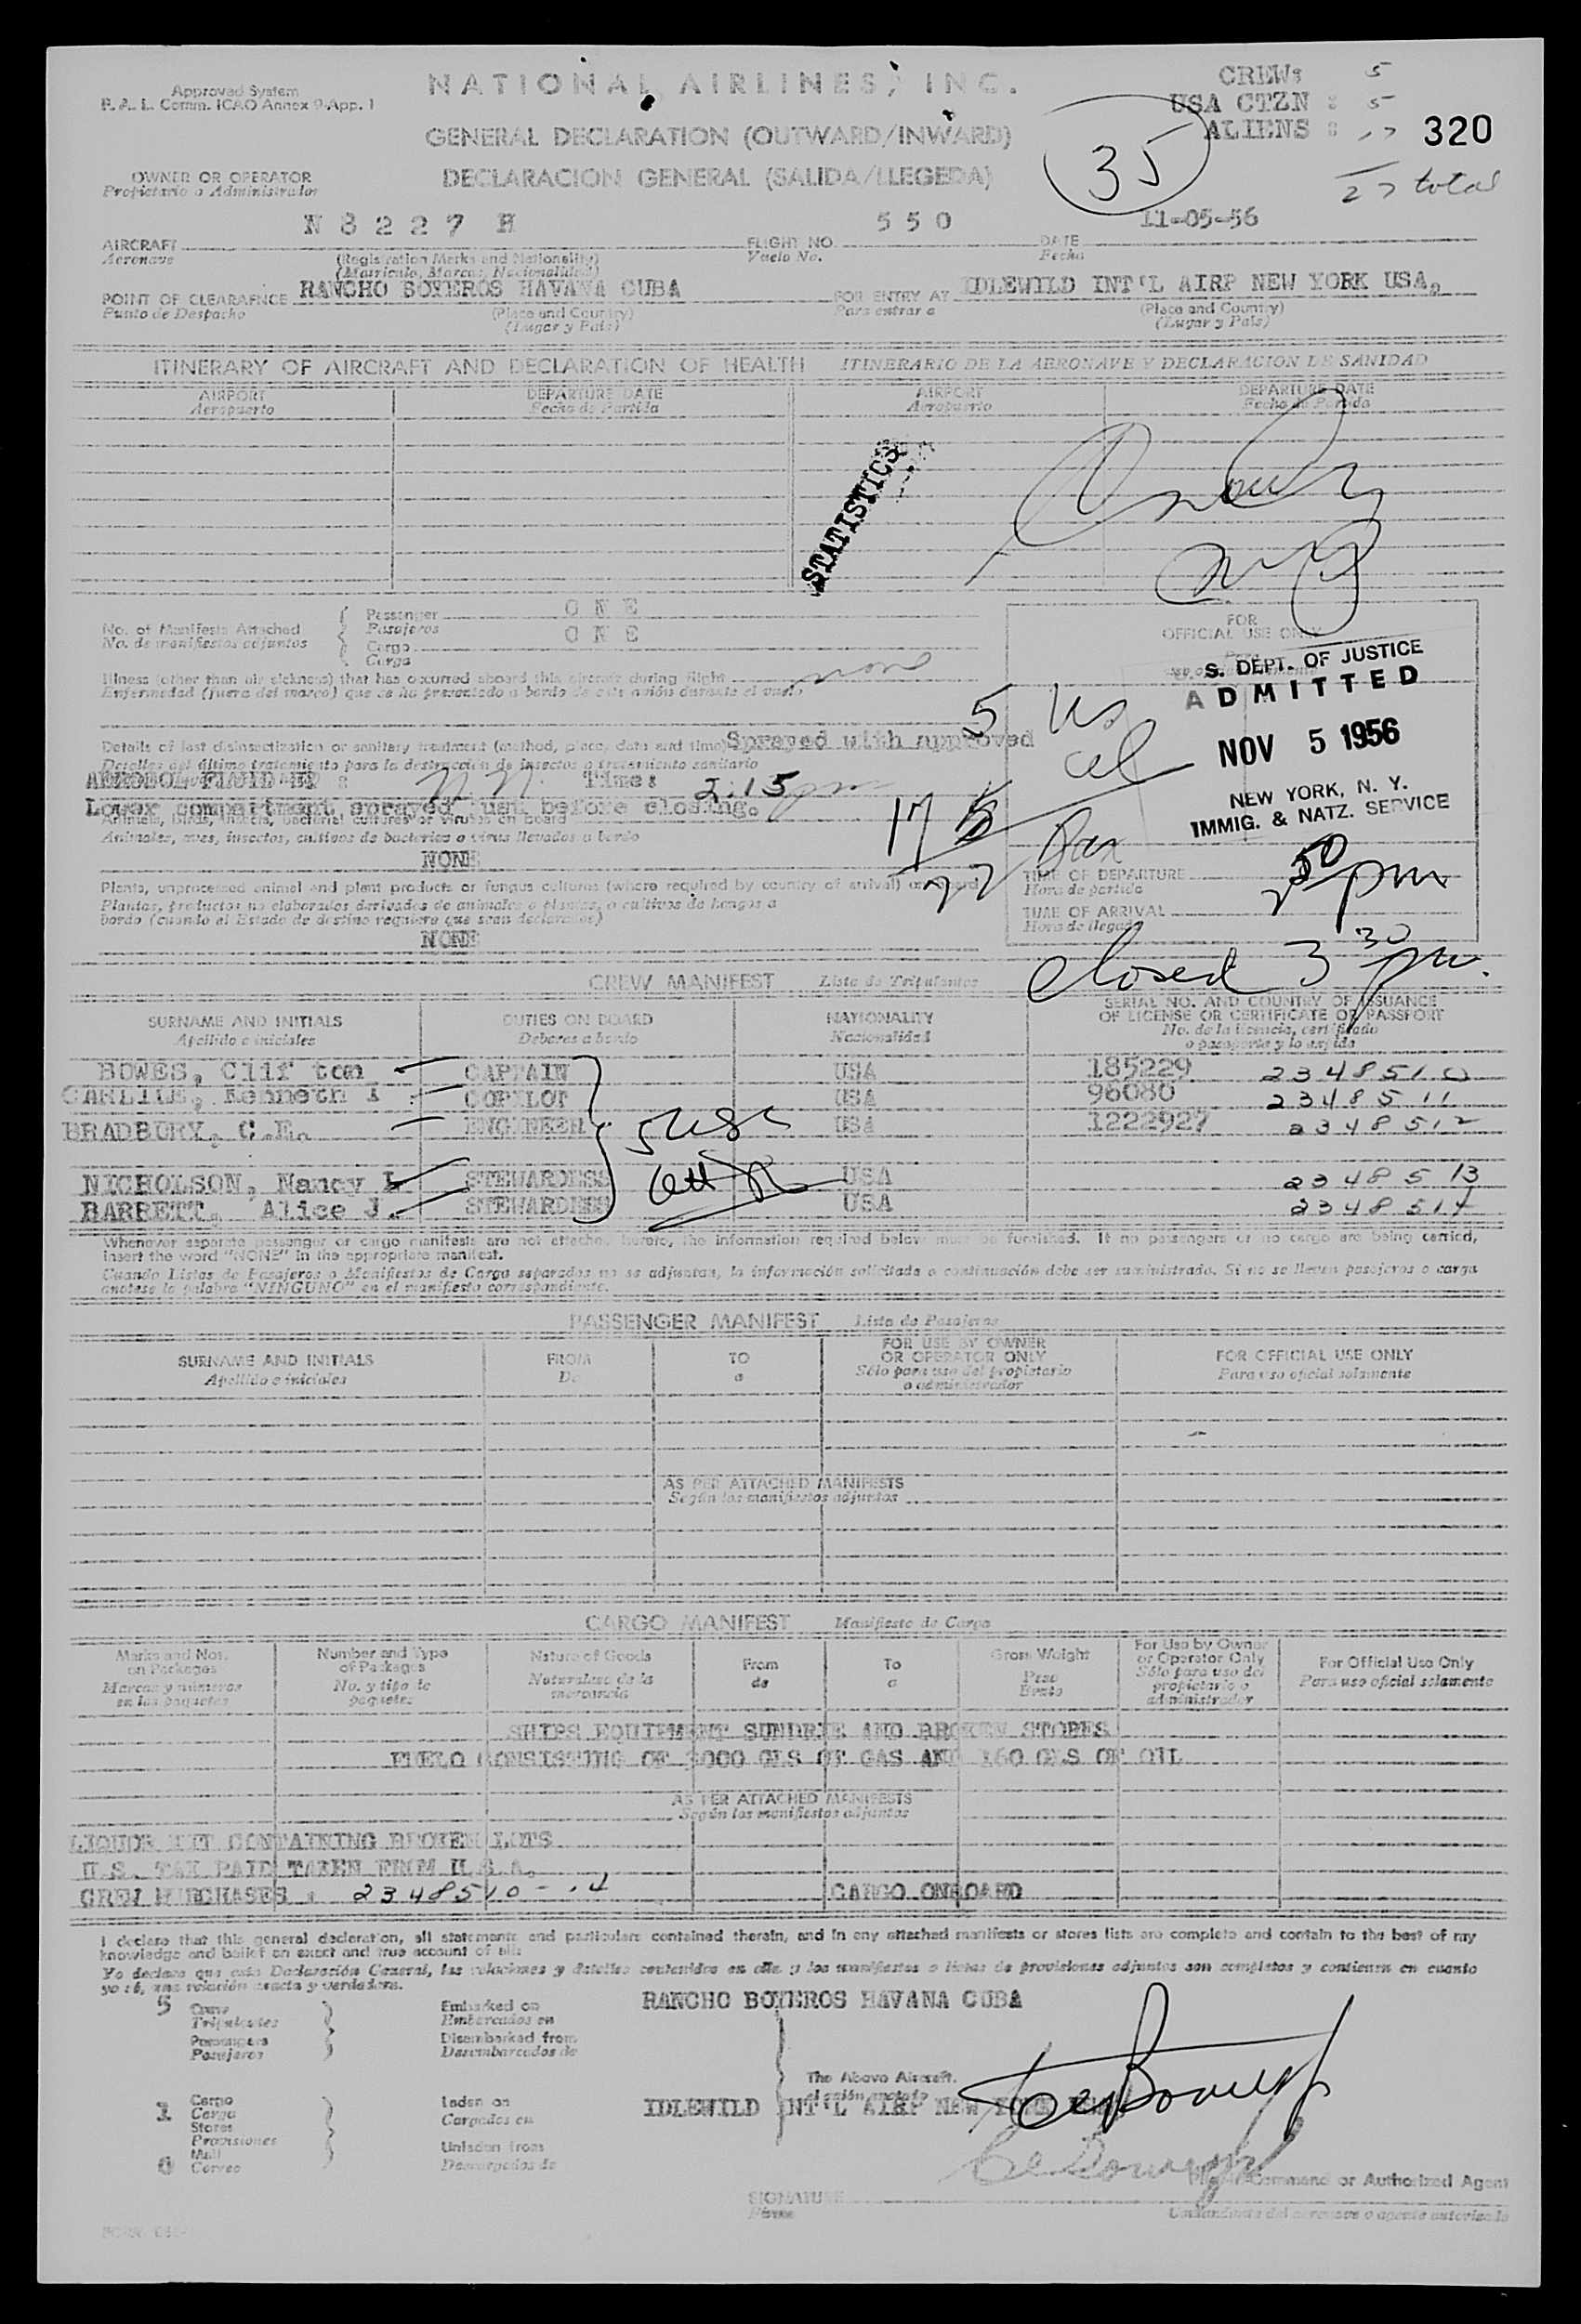 Approved System
P. A. L. Comm. ICAO Annex 9 App. 1
NATIONAL AIRLINES, INC.
CREW: 5
USA CTZN : 5
ALIENS : 17
320
27 total
35
GENERAL DECLARATION (OUTWARD/INWARD)
DECLARACION GENERAL (SALIDA/LLEGEDA)
OWNER OR OPERATOR
Propietario o Administrador
N 8 2 2 7 H
5 5 0
11-05-56
AIRCRAFT
Aeronave
(Registration Marks and Nationality)
(Matricula, Marcas, Nacionalidad)
FLIGHT NO.
Vuelo No.
DATE
Fecha
POINT OF CLEARAFNCE RANCHO BOYEROS HAVANA CUBA
Punto de Despacho
(Place and Country)
(Lugar y Pais)
FOR ENTRY AT IDLEWILD INT'L AIRP NEW YORK USA,
Para entrar a
(Place and Country)
(Lugar y Pais)
ITINERARY OF AIRCRAFT AND DECLARATION OF HEALTH ITINERARIO DE LA AERONAVE Y DECLARACION DE SANIDAD
AIRPORT
Aeropuerto
DEPARTURE DATE
Fecha de Partida
AIRPORT
Aeropuerto
DEPARTURE DATE
Fecha de Partida
STATISTICS
No. of Manifests Attached
No. de manifiestos adjuntos
Passenger ONE
Pasajeros
Cargo ONE
Carga
Illness (other than air sickness) that has occurred aboard this aircraft during flight none
Enfermedad (fuera del mareo) que se ha presentado a bordo de este avión durante el vuelo
FOR
OFFICIAL USE ONLY
S. DEPT. OF JUSTICE
ADMITTED
NOV 5 1956
NEW YORK, N. Y.
IMMIG. & NATZ. SERVICE
5 US
Cit
17
Pax
22
Details of last disinsectization or sanitary treatment (method, place, date and time) Sprayed with approved
Detalles del último tratamiento para la destrucción de insectos o tratamiento sanitario
AEROSOL FLUID BY : N.N. Time: 2:15 pm
Lower compartment sprayed just before closing.
Animals, birds, insects, bacterial cultures or viruses on board
Animales, aves, insectos, cultivos de bacterias o virus llevados a bordo
NONE
Plants, unprocessed animal and plant products or fungus cultures (where required by country of arrival) on board
Plantas, productos no elaborados derivados de animales o plantas, o cultivos de hongos a
bordo (cuando el Estado de destino requiera que sean declarados)
NONE
TIME OF DEPARTURE
Hora de partida
TIME OF ARRIVAL
Hora de llegada
2 50 pm
closed 3 30 pm.
CREW MANIFEST Lista de Tripulantes
SURNAME AND INITIALS
Apellido e iniciales
DUTIES ON BOARD
Deberes a bordo
NATIONALITY
Nacionalidad
SERIAL NO. AND COUNTRY OF ISSUANCE
OF LICENSE OR CERTIFICATE OR PASSPORT
No. de la licencia, certificado
o pasaporte y lo expida
BOWES, Clifton CAPTAIN USA 185229 2348510
Kenneth COPILOT USA 96080 2348511
BRADBURY, C.E. ENGINEER USA 1222927 2348512
NICHOLSON, Nancy L STEWARDESS USA 2348513
BARRETT, Alice J. STEWARDESS USA 2348514
Whenever separate passenger or cargo manifests are not attached hereto, the information required below must be furnished. If no passengers or no cargo are being carried,
insert the word "NONE" in the appropriate manifest.
Cuando Listas de Pasajeros o Manifiestos de Carga separados no se adjuntan, la información solicitada a continuación debe ser suministrada. Si no se llevan pasajeros o carga
anótese la palabra "NINGUNO" en el manifiesto correspondiente.
PASSENGER MANIFEST Lista de Pasajeros
SURNAME AND INITIALS
Apellido e iniciales
FROM
De
TO
a
FOR USE BY OWNER
OR OPERATOR ONLY
Sólo para uso del propietario
o administrador
FOR OFFICIAL USE ONLY
Para uso oficial solamente
AS PER ATTACHED MANIFESTS
Según los manifiestos adjuntos
CARGO MANIFEST Manifiesto de Carga
Marks and Nos.
on Packages
Marcas y números
en los paquetes
Number and Type
of Packages
No. y tipo de
paquetes
Nature of Goods
Naturaleza de la
mercancía
From
de
To
a
Gross Weight
Peso
Bruto
For Use by Owner
or Operator Only
Sólo para uso del
propietario o
administrador
For Official Use Only
Para uso oficial solamente
SHIPS EQUIPMENT SUNDRIE AND BROKEN STORES
FUELO CONSISTING OF 3000 GLS OF GAS AND 160 GLS OF OIL
AS PER ATTACHED MANIFESTS
Según los manifiestos adjuntos
LIQUOR KIT CONTAINING BROKEN LOTS
U.S. TAX PAID TAKEN FROM U.S.A.
CREW PURCHASES : 2348510 - 14 CARGO ONBOARD
I declare that this general declaration, all statements and particulars contained therein, and in any attached manifests or stores lists are complete and contain to the best of my
knowledge and belief an exact and true account of all:
Yo declaro que esta Declaración General, las relaciones y detalles contenidos en ella y los manifiestos o listas de provisiones adjuntos son completos y contienen en cuanto
yo sé, una relación exacta y verdadera.
5 Crew
Tripulantes
Passengers
Pasajeros
Embarked on
Embarcados en
Disembarked from
Desembarcados de
RANCHO BOYEROS HAVANA CUBA
The Above Aircraft.
el avión anotado
1 Cargo
Carga
Stores
Provisiones
Mail
0 Correo
Laden on
Cargados en
Unladen from
Descargados de
IDLEWILD INT'L AIRP NEW YORK
Command or Authorized Agent
SIGNATURE
Firma
Comandante del aeronave o agente autorizado